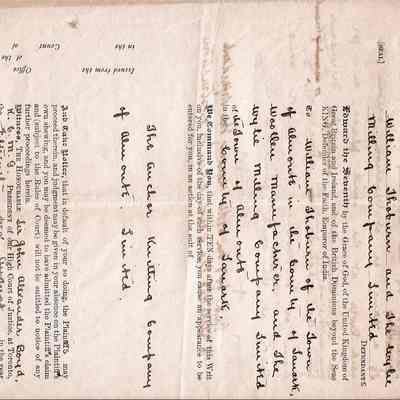 [SEAL]
William Thoburn and The Wylie
Milling Company Limited
DEFENDANTS.
Edward the Seventh by the Grace of God, of the United Kingdom of
Great Britain and Ireland, and of the British Dominions beyond the Seas
KING, Defender of the Faith, Emperor of India.
To William Thoburn of the Town
of Almonte in the County of Lanark,
Woollen Manufacturer, and The
Wylie Milling Company Limited
of the Town of Almonte
in the County of Lanark.
We Command You, that within TEN days after the service of this Writ
on you, inclusive of the day of such service, you cause an appearance to be
entered for you, in an action at the suit of
The Anchor Knitting Company
of Almonte Limited.
And Take Notice, that in default of your so doing, the Plaintiffs may
proceed therein, and judgment may be given in your absence on the Plaintiffs
own shewing, and you may be deemed to have admitted the Plaintiffs claim
and (subject to the Rules of Court) will not be entitled to notice of any
further proceedings herein.
Witness, THE HONOURABLE Sir John Alexander Boyd,
K. C. M. G. PRESIDENT of our High Court of Justice, at Toronto,
day of in the year
Issued from the Office of the
Court
in the of